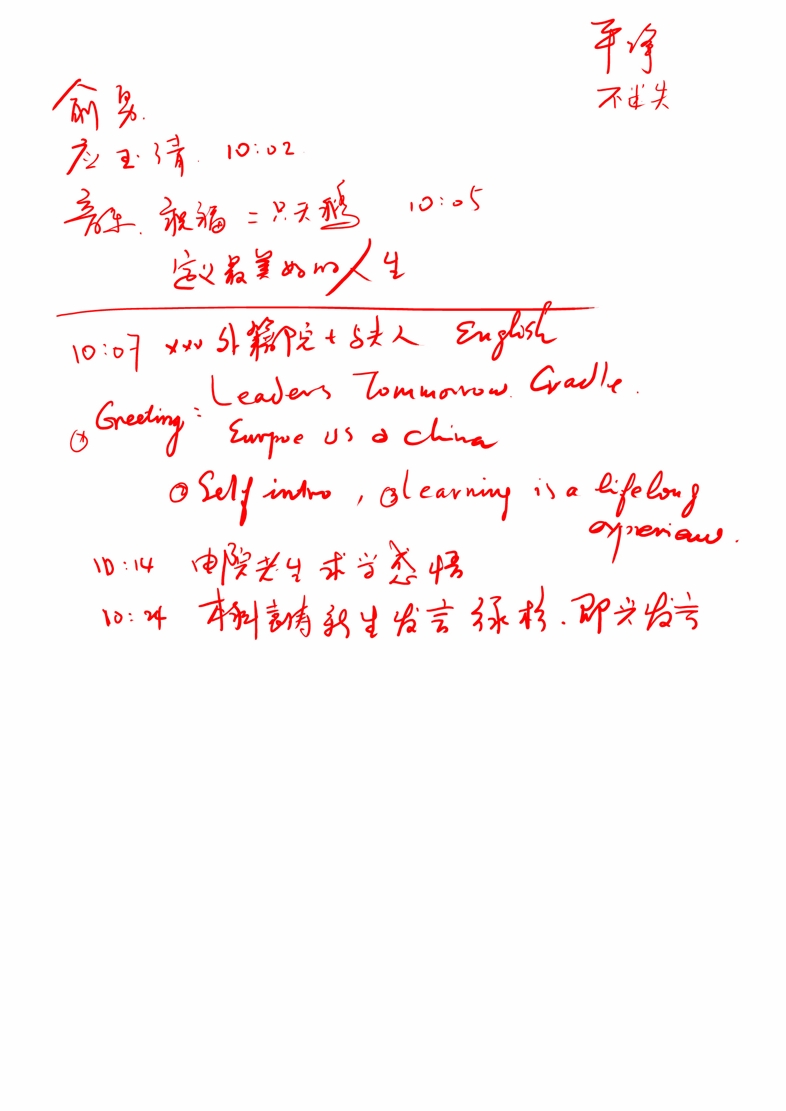 平净
不迷失
俞勇.
应玉清. 10:02
音乐. 祝福 = 只天鹅 10:05
定义最美好的人生
10:07 xxx 外籍院士与夫人 English
① Greeting: Leaders Tommorrow Cradle.
Eurpoe US & china
② Self intro, ③ learning is a lifelong
experience.
10:14 电院老生求学感悟
10:24 本科 新生发言 绿杉. 即兴发言